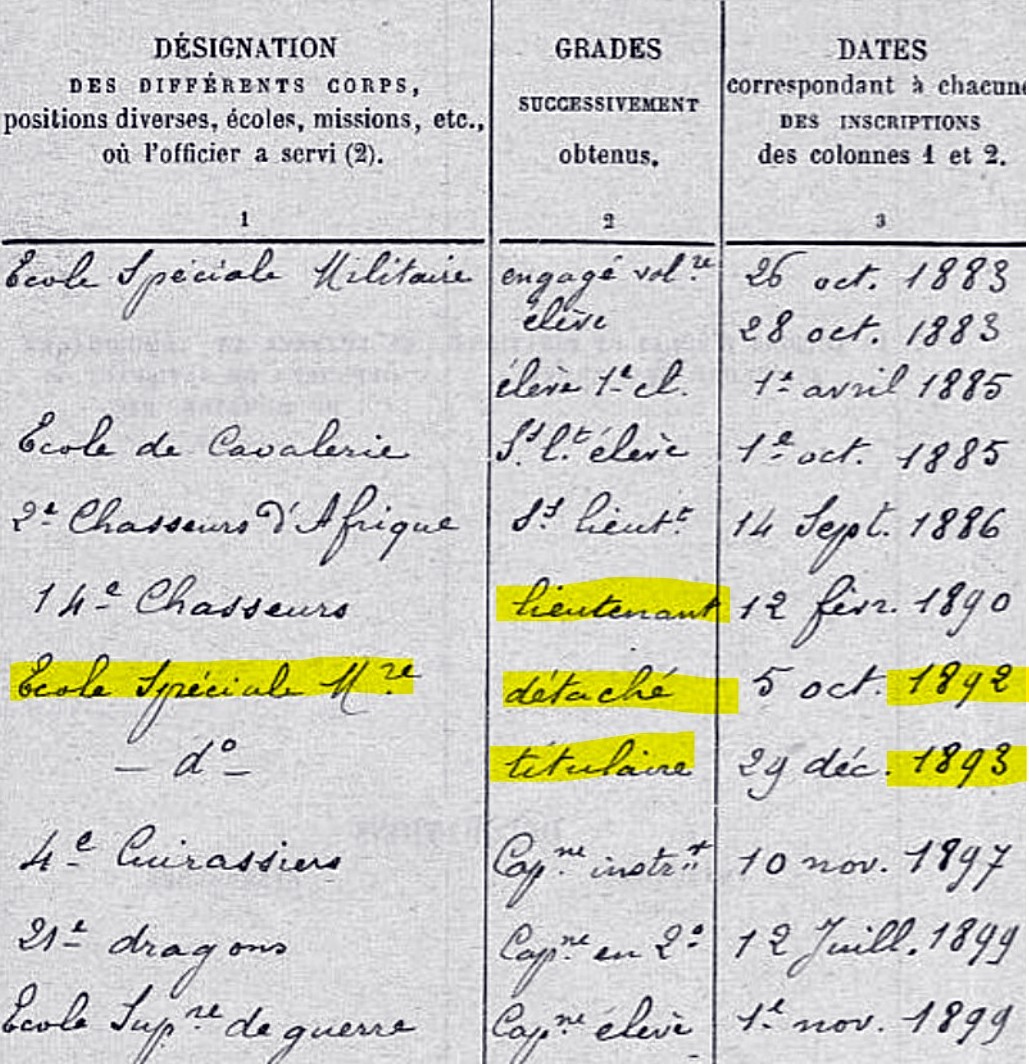 DÉSIGNATION
DES DIFFÉRENTS CORPS,
positions diverses, écoles, missions, etc.,
où l'officier a servi (2).
1
GRADES
SUCCESSIVEMENT
obtenus.
2
DATES
correspondant à chacune
DES INSCRIPTIONS
des colonnes 1 et 2.
3
Ecole Spéciale Militaire engagé vol.re 26 oct. 1883
élève 28 oct. 1883
élève 1e cl. 1e avril 1885
Ecole de Cavalerie Ss. lt. élève 1e oct. 1885
2e Chasseurs d'Afrique Ss. lieutt. 14 Sept. 1886
14e Chasseurs lieutenant 12 févr. 1890
Ecole Spéciale M.re détaché 5 oct. 1892
– do – titulaire 29 déc. 1893
4e Cuirassiers Cap.ne instr.r 10 nov. 1897
21e dragons Cap.ne en 2e 12 Juill. 1899
Ecole Sup.re de guerre Cap.ne élève 1e nov. 1899